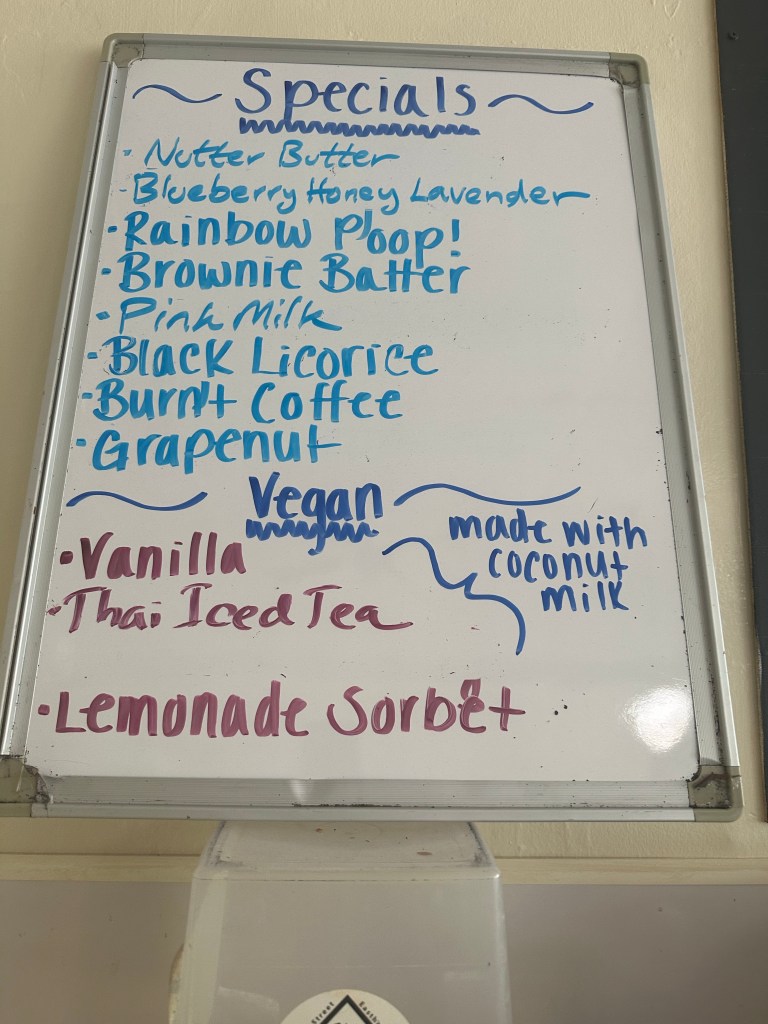 Specials
· Nutter Butter
· Blueberry Honey Lavender
· Rainbow P'oop!
· Brownie Batter
· Pink Milk
· Black Licorice
· Burn't Coffee
· Grapenut
Vegan
made with
coconut
milk
· Vanilla
· Thai Iced Tea
· Lemonade Sorbët
Street